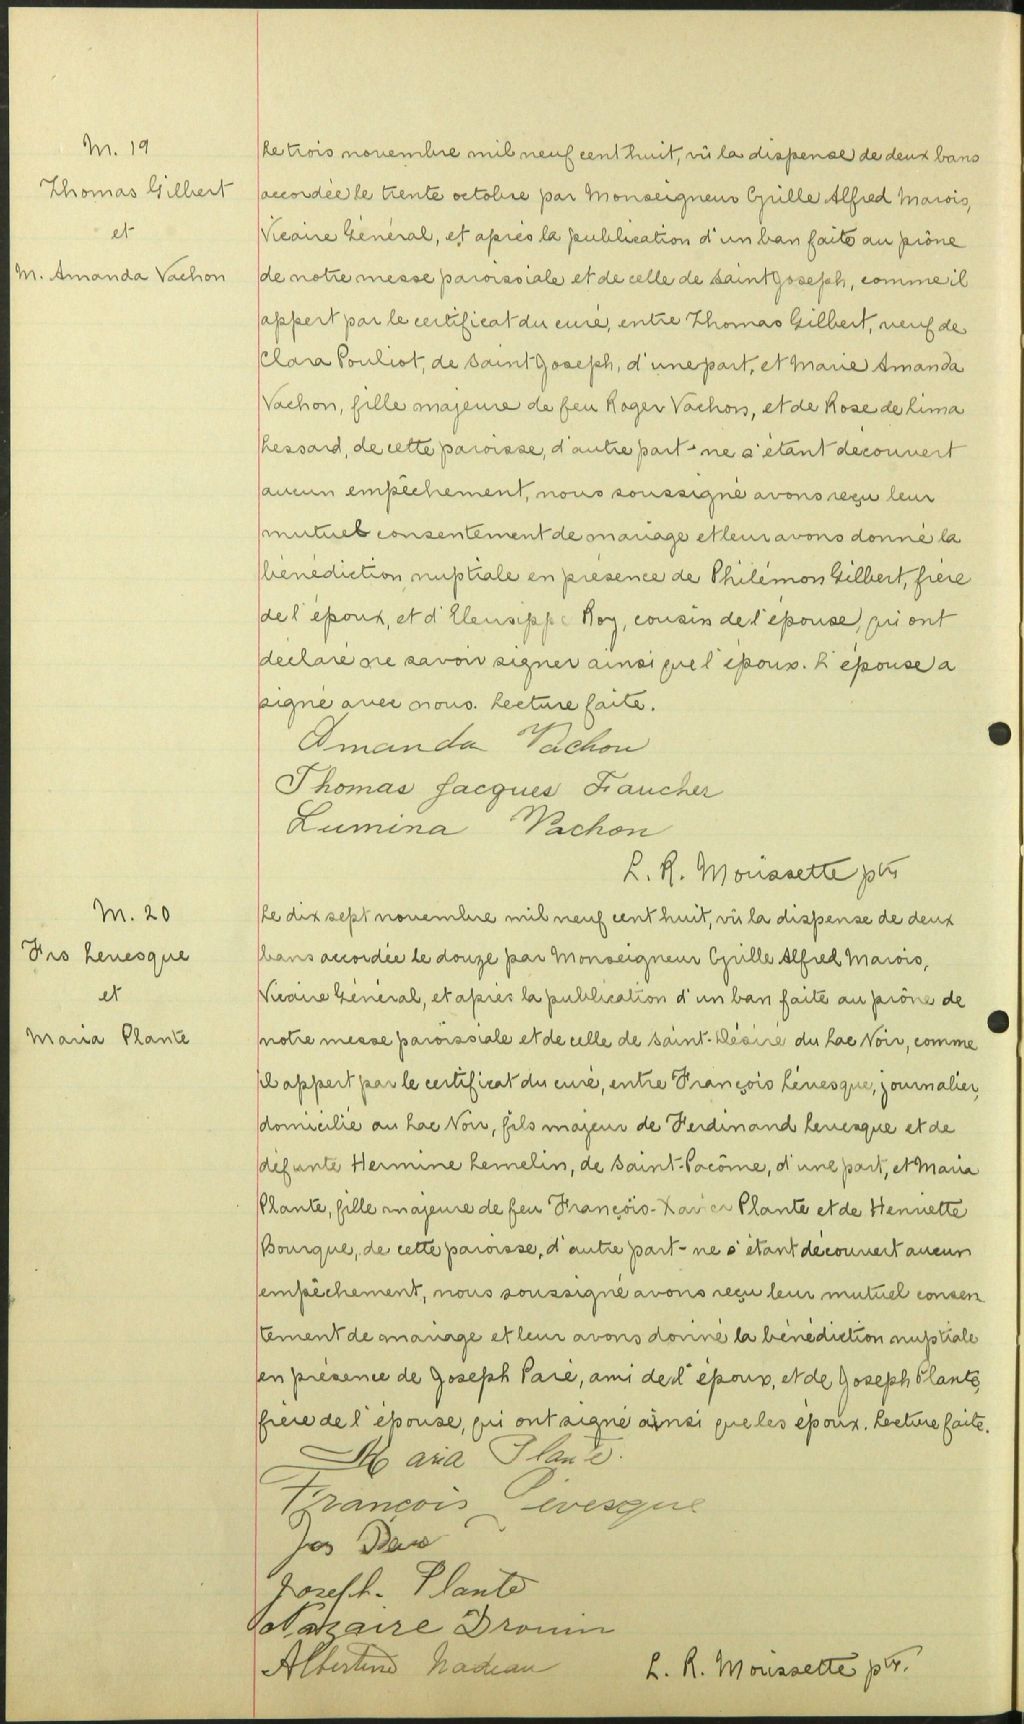 M. 19
Thomas Gilbert
et
M. Amanda Vachon
Le trois novembre mil neuf cent huit, vû la dispense de deux bans
accordée le trente octobre par Monseigneur Cyrille Alfred Marois,
Vicaire Général, et après la publication d'un ban faite au prône
de notre messe paroissiale et de celle de Saint Joseph, comme il
appert par le certificat du curé, entre Thomas Gilbert, veuf de
Clara Pouliot, de Saint Joseph, d'une part, et Marie Amanda
Vachon, fille majeure de feu Roger Vachon, et de Rose de Lima
Lessard, de cette paroisse, d'autre part - ne s'étant découvert
aucun empêchement, nous soussigné avons reçu leur
mutuel consentement de mariage et leur avons donné la
bénédiction nuptiale en présence de Philémon Gilbert, frère
de l'époux, et d'Eleusippe Roy, cousin de l'épouse, qui ont
déclaré ne savoir signer ainsi que l'époux. L'épouse a
signé avec nous. Lecture faite.
Amanda Vachon
Thomas Jacques Faucher
Lumina Vachon
L. R. Morissette ptr
M. 20
Frs Levesque
et
Maria Plante
Le dix sept novembre mil neuf cent huit, vû la dispense de deux
bans accordée le douze par Monseigneur Cyrille Alfred Marois,
Vicaire Général, et après la publication d'un ban faite au prône de
notre messe paroissiale et de celle de Saint-Désiré du Lac Noir, comme
il appert par le certificat du curé, entre François Lévesque, journalier,
domicilié au Lac Noir, fils majeur de Ferdinand Levesque et de
défunte Hermine Lemelin, de Saint-Pacôme, d'une part, et Maria
Plante, fille majeure de feu François-Xavier Plante et de Henriette
Bourque, de cette paroisse, d'autre part - ne s'étant découvert aucun
empêchement, nous soussigné avons reçu leur mutuel consen
tement de mariage et leur avons donné la bénédiction nuptiale
en présence de Joseph Paré, ami de l'époux, et de Joseph Plante,
frère de l'épouse, qui ont signé ainsi que les époux. Lecture faite.
Maria Plante.
François Lévesque
Jos Paré
Joseph. Plante
Nazaire Drouin
Albertine Nadeau
L. R. Morissette ptr.